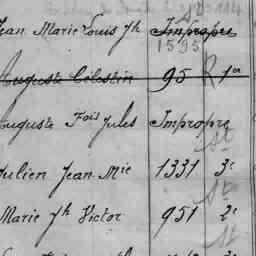 Jean Marie Louis Jh Impropre
1595
Auguste Célestin 95 R 1er
Auguste Fois Jules Impropre
Julien Jean Mie 1331 3e
Marie Jh Victor 951 2e